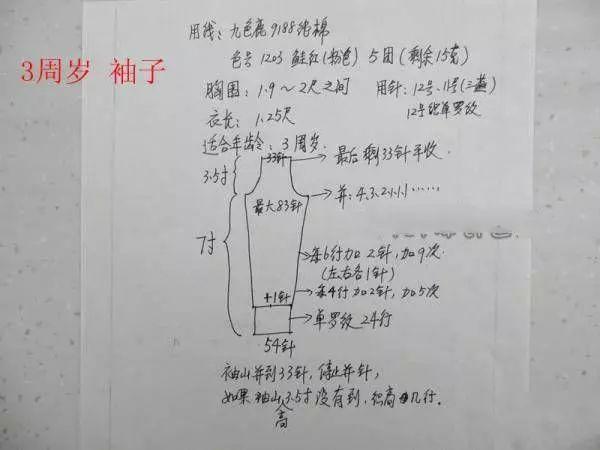 用线：九色鹿9188纯棉
色号1203 鲑红(粉色) 5团(剩余15克)
3周岁 袖子
胸围：1.9～2尺之间 用针：12号、11号(三燕)
12号织单罗纹
衣长：1.25尺
适合年龄：3周岁.
33针
最后剩33针平收.
3.5寸
并：4.3.2.1.1.1……
最大83针
7寸
每6行加2针，加9次
(左右各1针)
每4行加2针，加5次
+1针
单罗纹24行
54针
袖山并到33针，停止并针，
如果袖山高3.5寸没有到，织高几行.